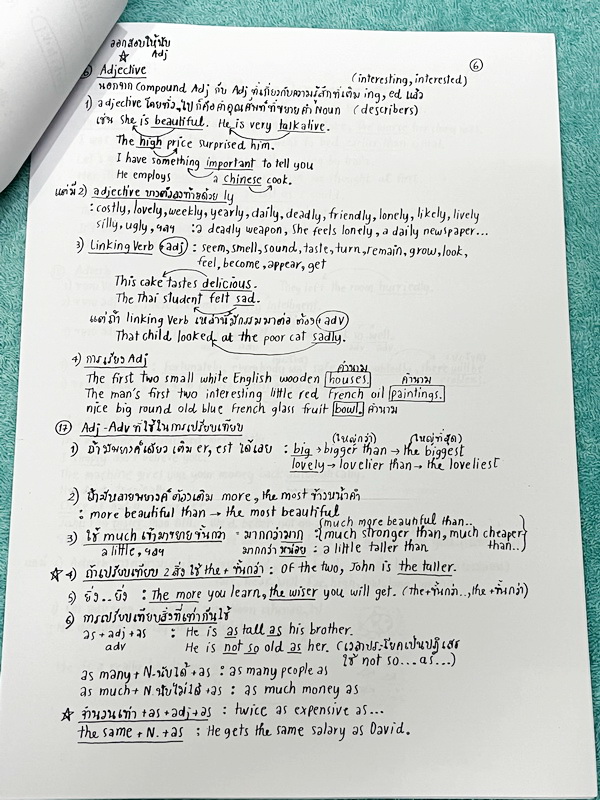 ออกสอบให้นับ
☆ Adj
⑥
⑯ Adjective (interesting, interested)
นอกจาก Compound Adj กับ Adj ที่เกี่ยวกับความรู้สึกที่เติม ing, ed แล้ว
1) adjective โดยทั่วไปก็คือคำคุณศัพท์ที่ขยายคำ Noun (describers)
เช่น She is beautiful. He is very talkative.
The high price surprised him.
I have something important to tell you
He employs a chinese cook.
แต่มี 2) adjective บางตัวลงท้ายด้วย ly
: costly, lovely, weekly, yearly, daily, deadly, friendly, lonely, likely, lively
silly, ugly, ฯลฯ : a deadly weapon, She feels lonely, a daily newspaper...
3) Linking Verb + adj : seem, smell, sound, taste, turn, remain, grow, look,
feel, become, appear, get
This cake tastes delicious.
The Thai student felt sad.
แต่ถ้า linking Verb เหล่านี้มีกรรมมาต่อ ต้อง + adv
That child looked at the poor cat sadly.
4) การเรียง Adj
คำนาม
The first two small white English wooden houses. คำนาม
The man's first two interesting little red French oil paintings.
nice big round old blue French glass fruit bowl. คำนาม
⑰ Adj-Adv ที่ใช้ในการเปรียบเทียบ
(ใหญ่กว่า) (ใหญ่ที่สุด)
1) ถ้ามีพยางค์เดียว เติม er, est ได้เลย : big → bigger than → the biggest
lovely → lovelier than → the loveliest
2) ถ้ามีหลายพยางค์ ต้องเติม more, the most ข้างหน้าคำ
: more beautiful than → the most beautiful
3) ใช้ much เข้ามาขยายขั้นกว่า = มากกว่ามาก : {much more beautiful than.. much stronger than, much cheaper than..}
a little, ฯลฯ มากกว่าหน่อย : a little taller than
☆ 4) ถ้าเปรียบเทียบ 2 สิ่ง ใช้ the + ขั้นกว่า : Of the two, John is the taller.
5) ยิ่ง..ยิ่ง : The more you learn, the wiser you will get. (the+ขั้นกว่า.., the+ขั้นกว่า)
6) การเปรียบเทียบสิ่งที่เท่ากันใช้
as + adj + as : He is as tall as his brother.
adv He is not so old as her. (เวลาประโยคเป็นปฏิเสธ
ใช้ not so...as...)
as many + N.นับได้ + as : as many people as
as much + N.นับไม่ได้ + as : as much money as
☆ จำนวนเท่า + as + adj + as : twice as expensive as...
the same + N. + as : He gets the same salary as David.